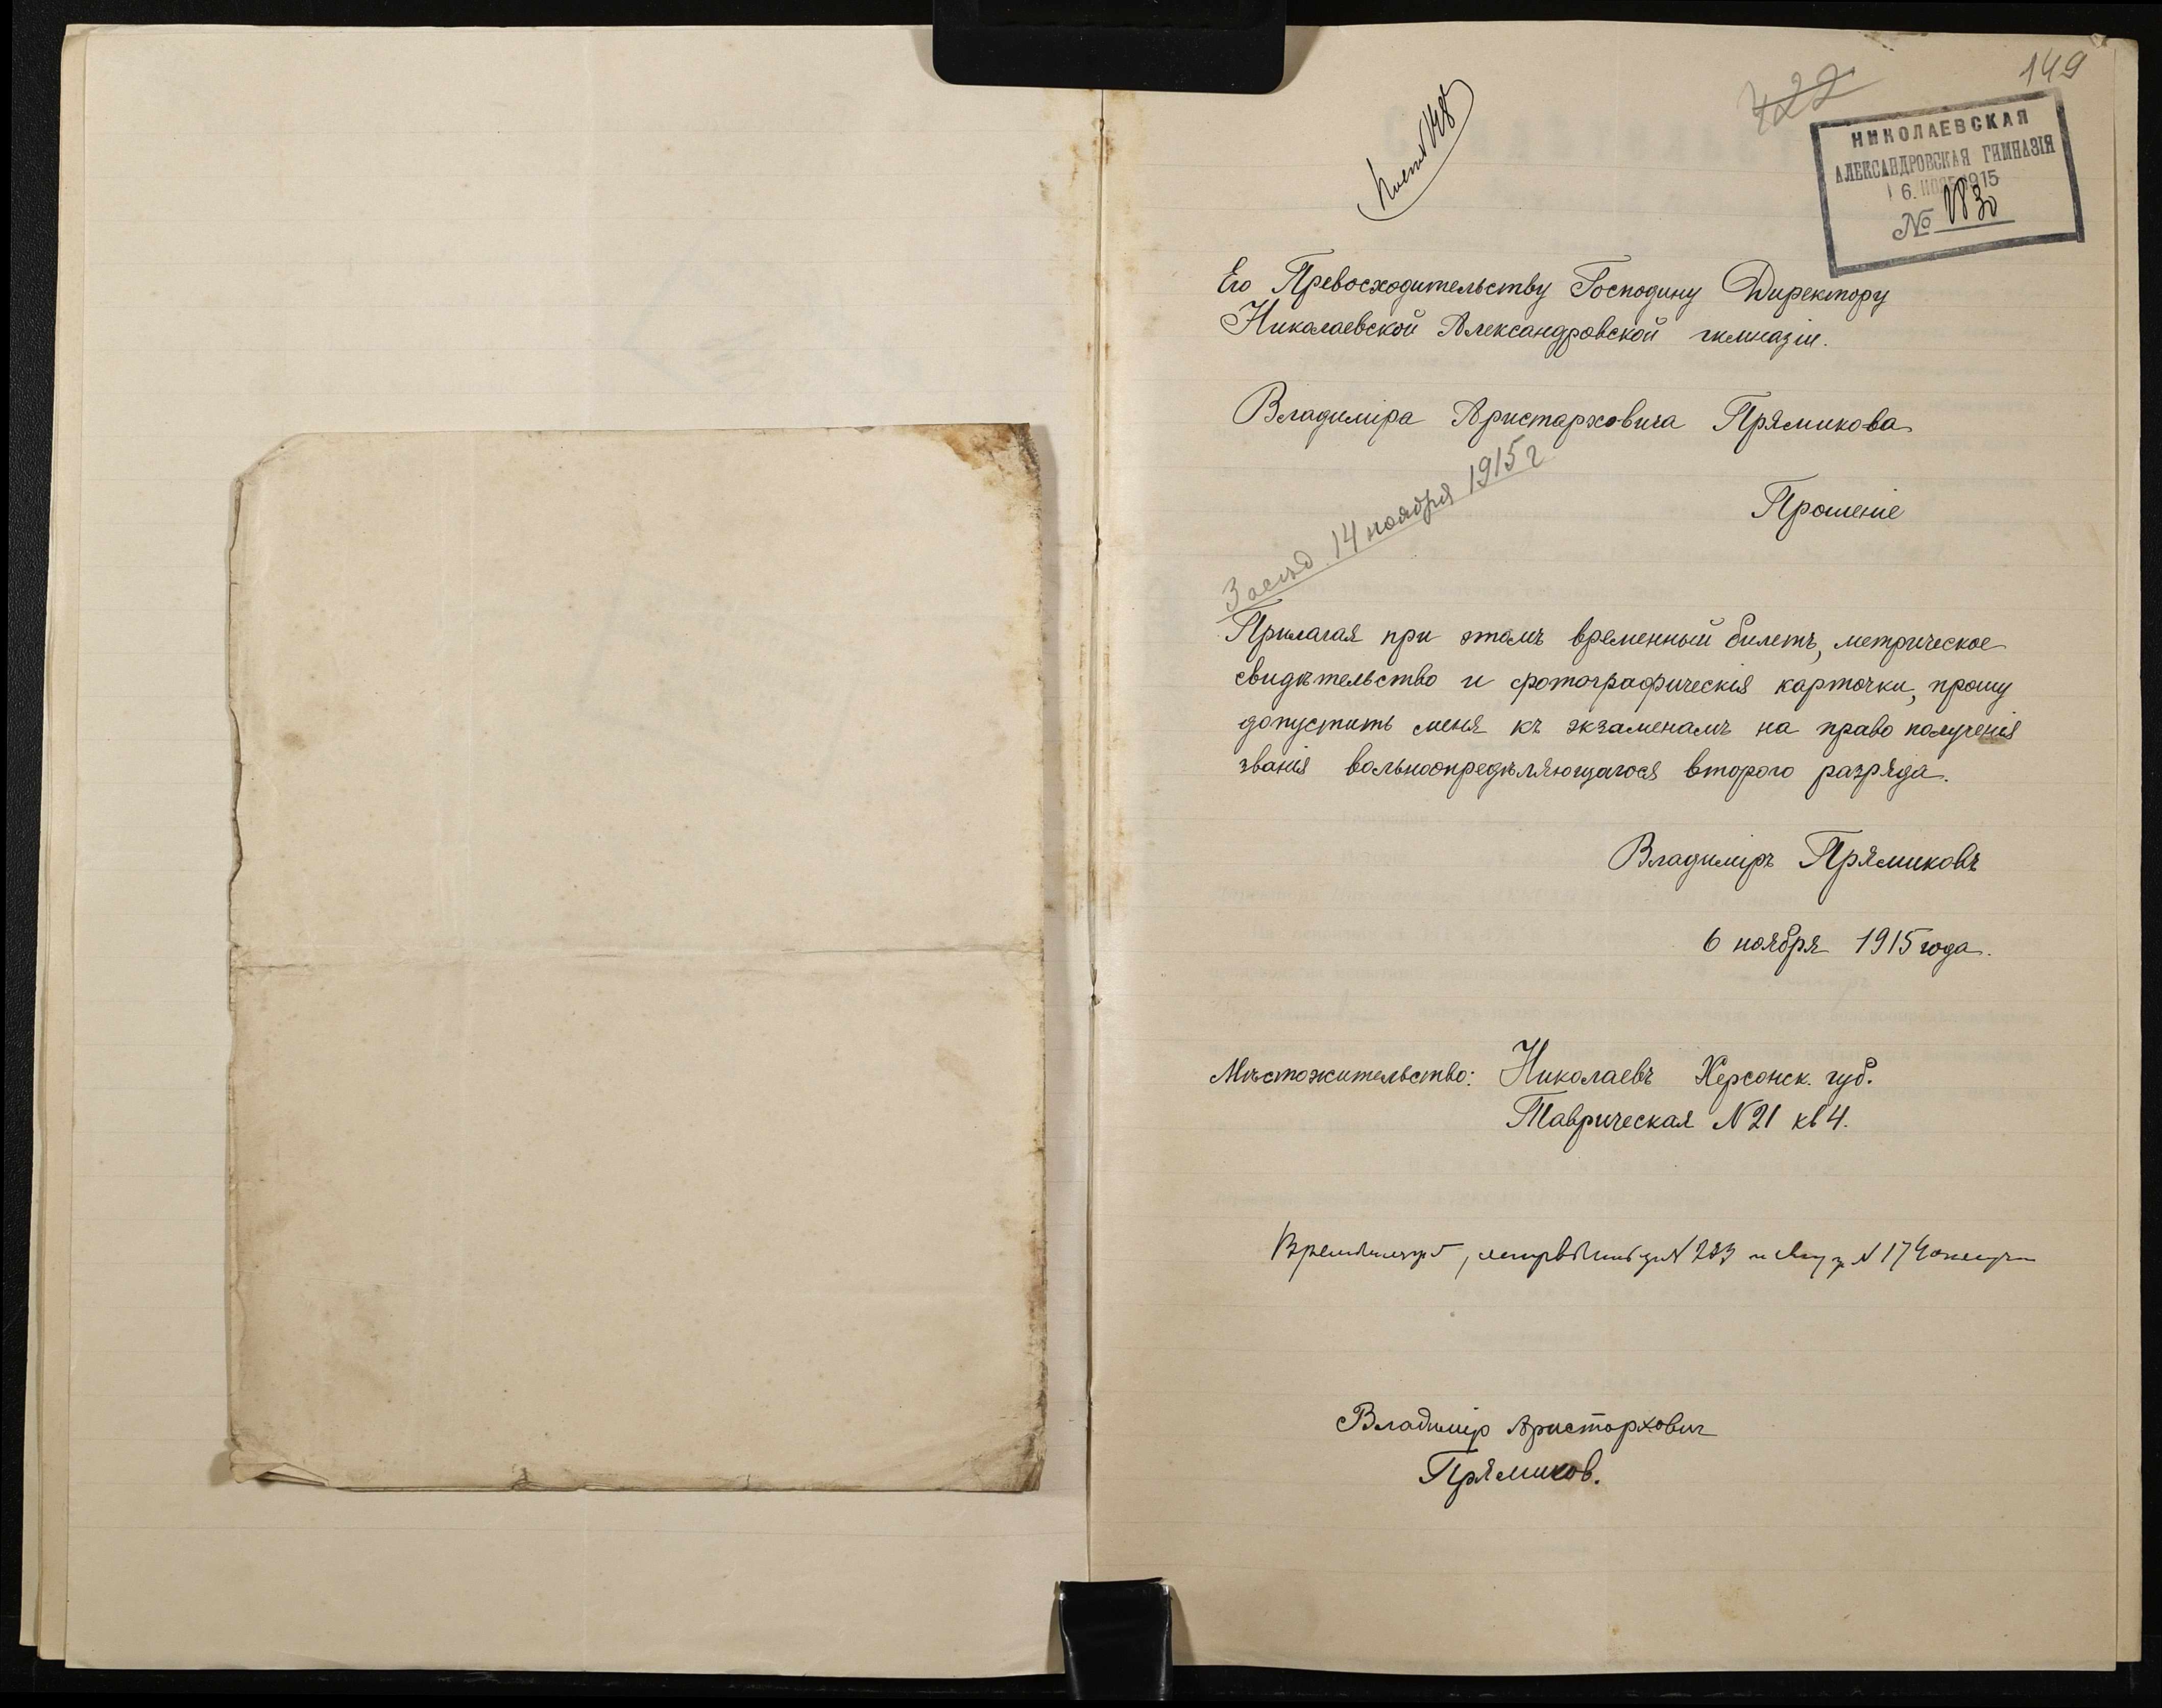 149
422
НИКОЛАЕВСКАЯ
АЛЕКСАНДРОВСКАЯ ГИМНАЗІЯ
6. НОЯБ 1915
№ 1830
Его Превосходительству Господину Директору
Николаевской Александровской гимназіи.
Владиміра Аристарховича Прямикова
Прошеніе
Засѣд. 14 ноября 1915 г
Прилагая при этомъ временный билетъ, метрическое
свидѣтельство и фотографическія карточки, прошу
допустить меня къ экзаменамъ на право полученія
званія вольноопредѣляющагося второго разряда.
Владиміръ Прямиковъ
6 ноября 1915 года.
Мѣстожительство: Николаевъ Херсонск. губ.
Таврическая N 21 кв 4.
N 283 N 174
Владимір Аристархович
Прямиков.